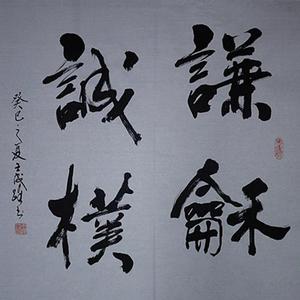 謙龢
誠樸
癸巳之夏王